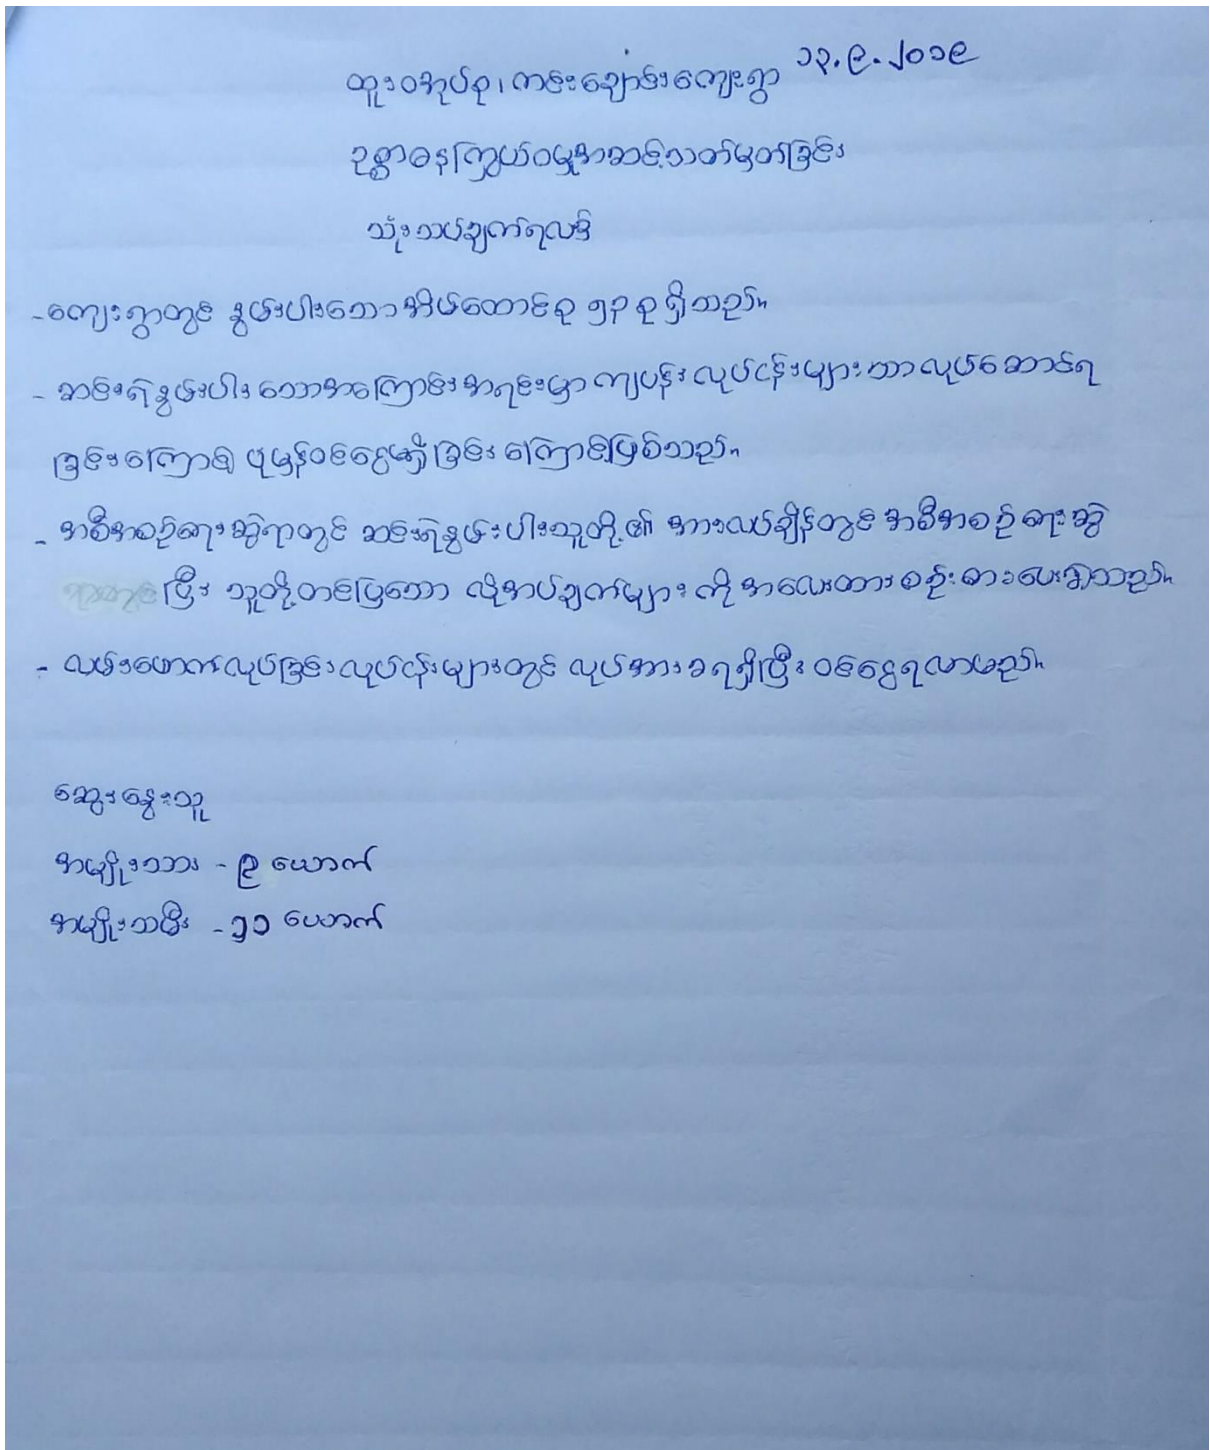 ၁၃.၉.၂၀၁၉
ထူးဝအုပ်စု၊ ကင်းချောင်းကျေးရွာ
ဥစ္စာဓနကြွယ်ဝမှုအဆင့်သတ်မှတ်ခြင်း
သုံးသပ်ချက်ရလဒ်
- ကျေးရွာတွင် နွမ်းပါးသောအိမ်ထောင်စု ၅၃ စု ရှိသည်။
- ဆင်းရဲနွမ်းပါးသောအကြောင်းအရင်းမှာ ကျပန်းလုပ်ငန်းများသာ လုပ်ဆောင်ရ
ခြင်းကြောင့် ပုံမှန်ဝင်ငွေမရှိခြင်းကြောင့်ဖြစ်သည်။
- အစီအစဉ်ရေးဆွဲရာတွင် ဆင်းရဲနွမ်းပါးသူတို့၏ အားလပ်ချိန်တွင် အစီအစဉ်ရေးဆွဲ
ပြီး သူတို့တင်ပြသော လိုအပ်ချက်များကို အလေးထားစဉ်းစားပေးရမည်။
- လမ်းဖောက်လုပ်ခြင်းလုပ်ငန်းများတွင် လုပ်အားခရရှိပြီး ဝင်ငွေရလာမည်။
ဆွေးနွေးသူ
အမျိုးသား - ၉ ယောက်
အမျိုးသမီး - ၅၁ ယောက်